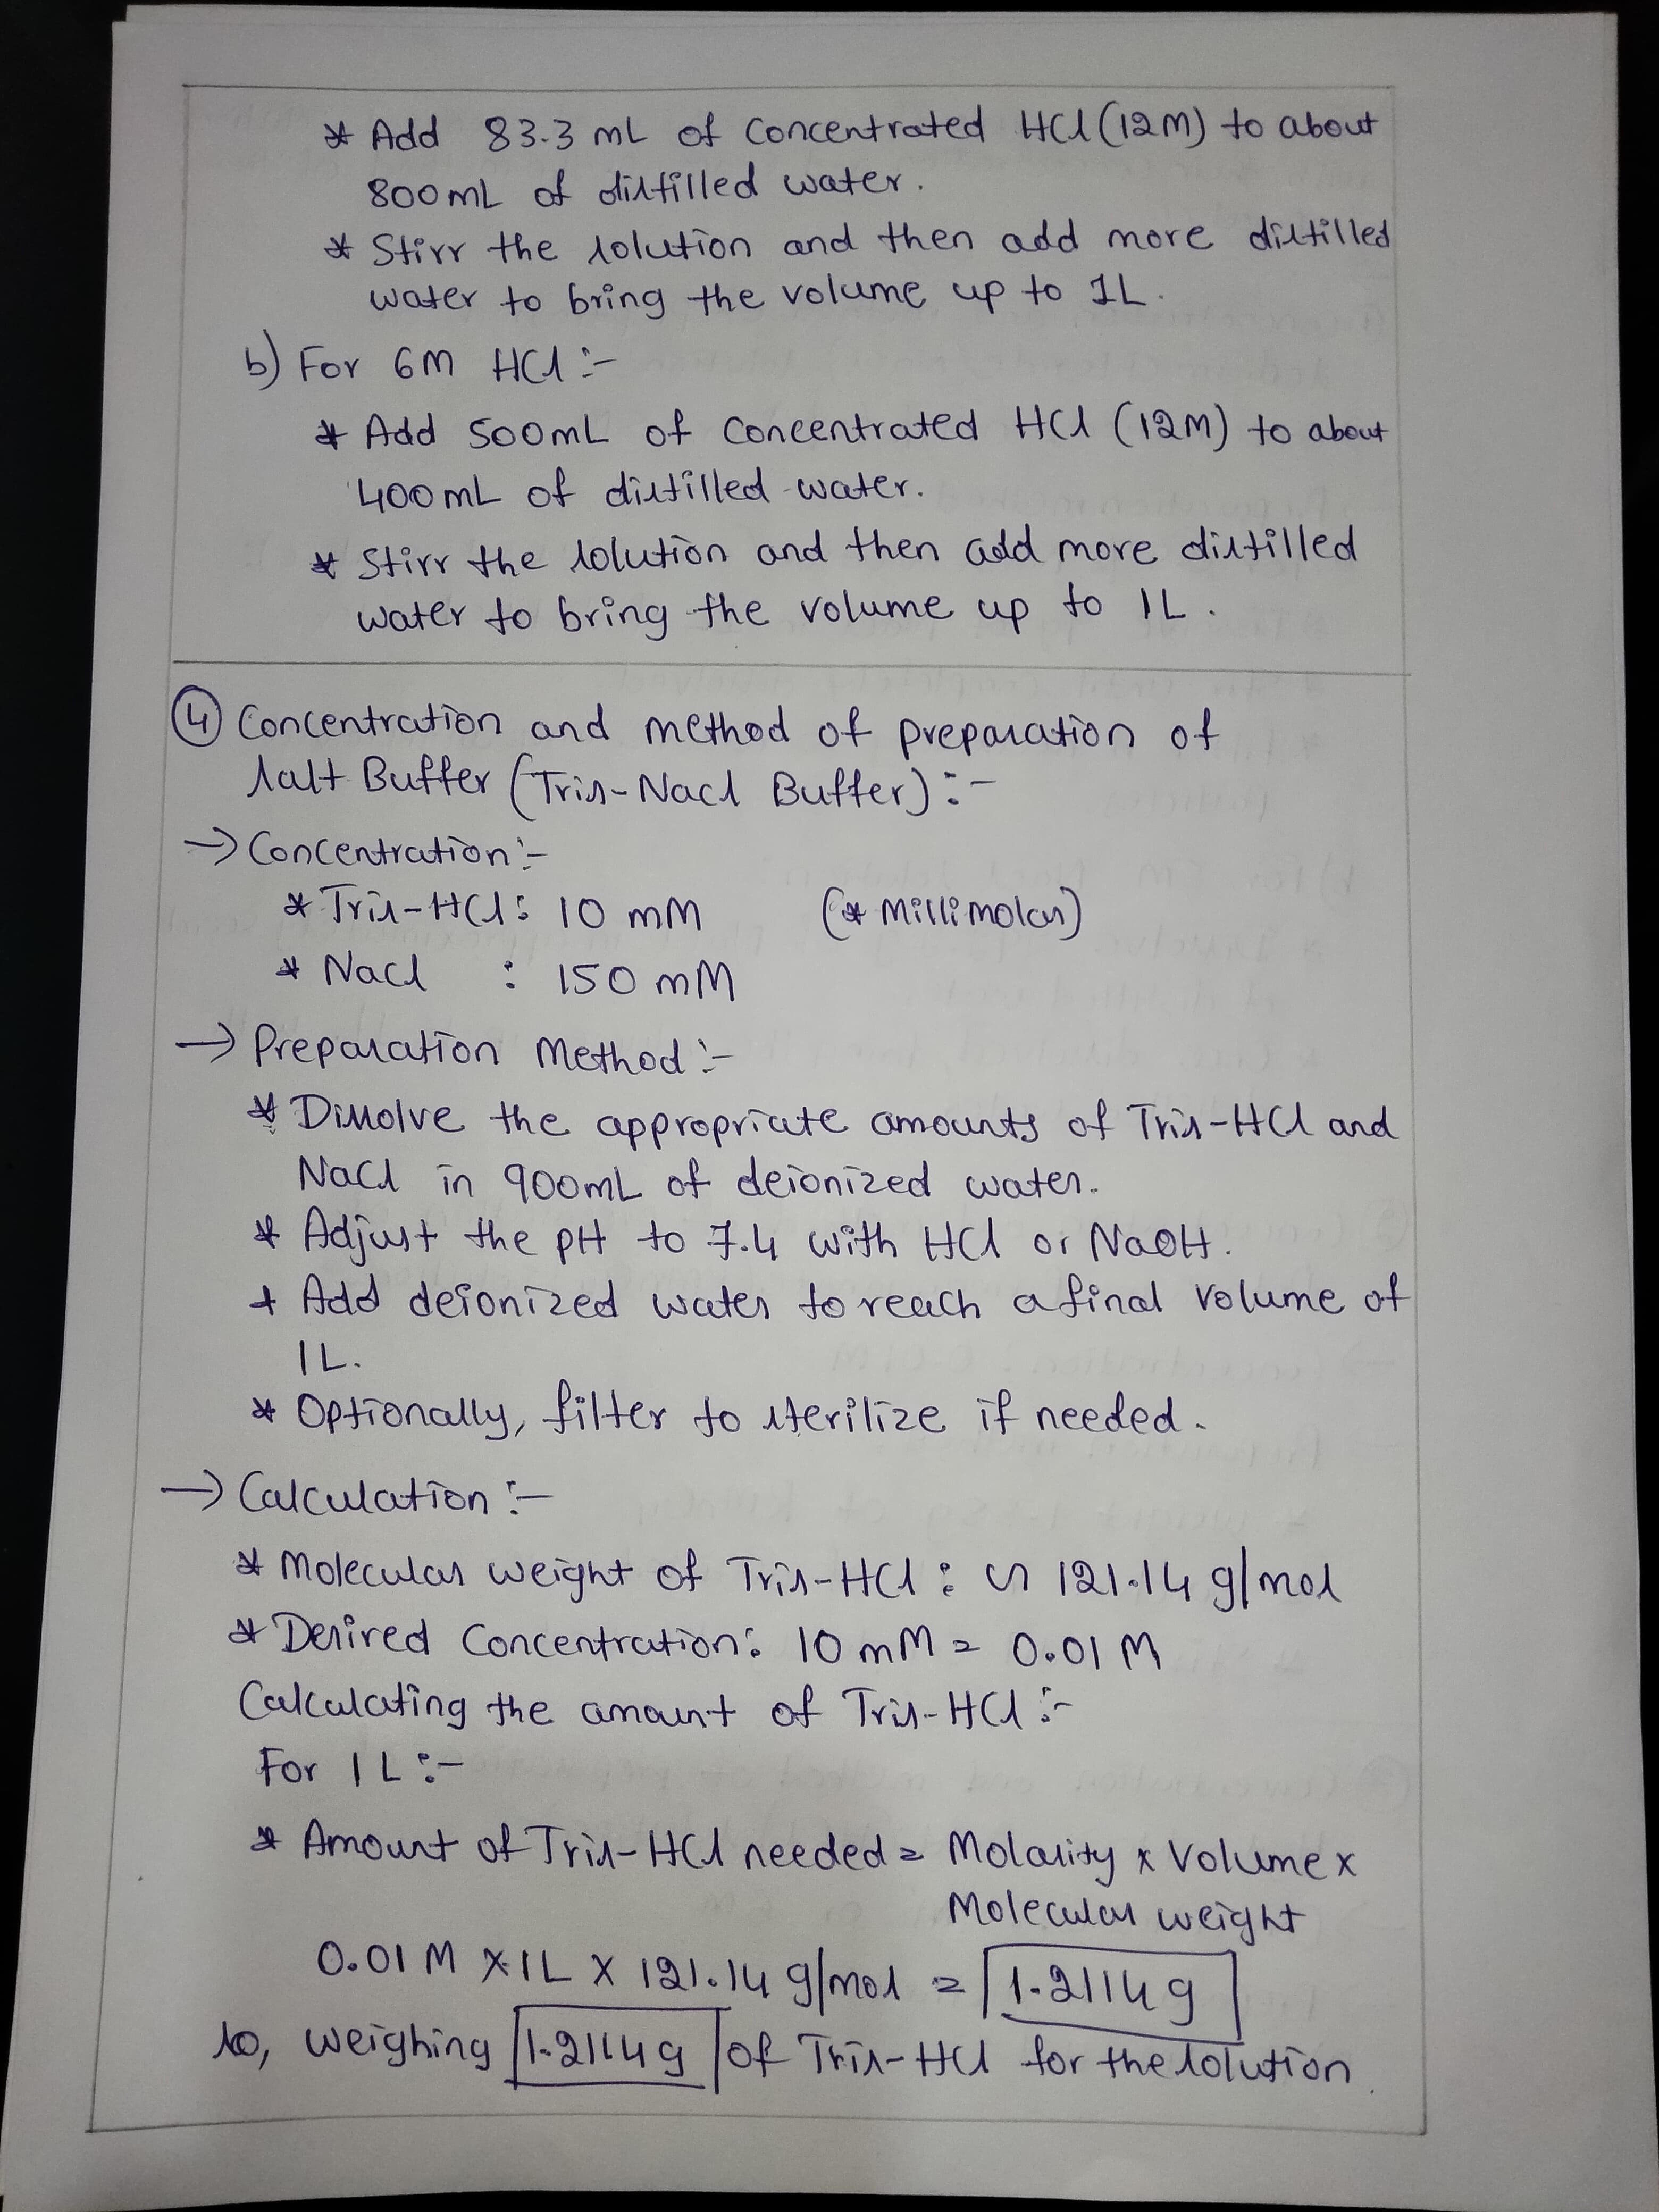 * Add 83.3 mL of concentrated HCl (12M) to about
800mL of distilled water.
* Stirr the solution and then add more distilled
water to bring the volume up to 1L.
b) For 6M HCl :-
* Add 500mL of concentrated HCl (12M) to about
400mL of distilled water.
* Stirr the solution and then add more distilled
water to bring the volume up to 1L.
④ Concentration and method of preparation of
salt Buffer (Tris-Nacl Buffer) :-
→ Concentration :-
* Tris-HCl : 10 mM (* Millimolar)
* Nacl : 150 mM
→ Preparation Method :-
* Dissolve the appropriate amounts of Tris-HCl and
NaCl in 900mL of deionized water.
* Adjust the pH to 7.4 with HCl or NaOH.
* Add deionized water to reach a final volume of
1L.
* Optionally, filter to sterilize if needed.
→ Calculation :-
* Molecular weight of Tris-HCl : ∽ 121.14 g/mol
* Desired Concentration: 10 mM = 0.01 M
Calculating the amount of Tris-HCl :-
For 1 L :-
* Amount of Tris-HCl needed = Molarity x Volume x
Molecular weight
0.01 M x 1L x 121.14 g/mol = 1.2114 g
so, weighing 1.2114 g of Tris-HCl for the solution.